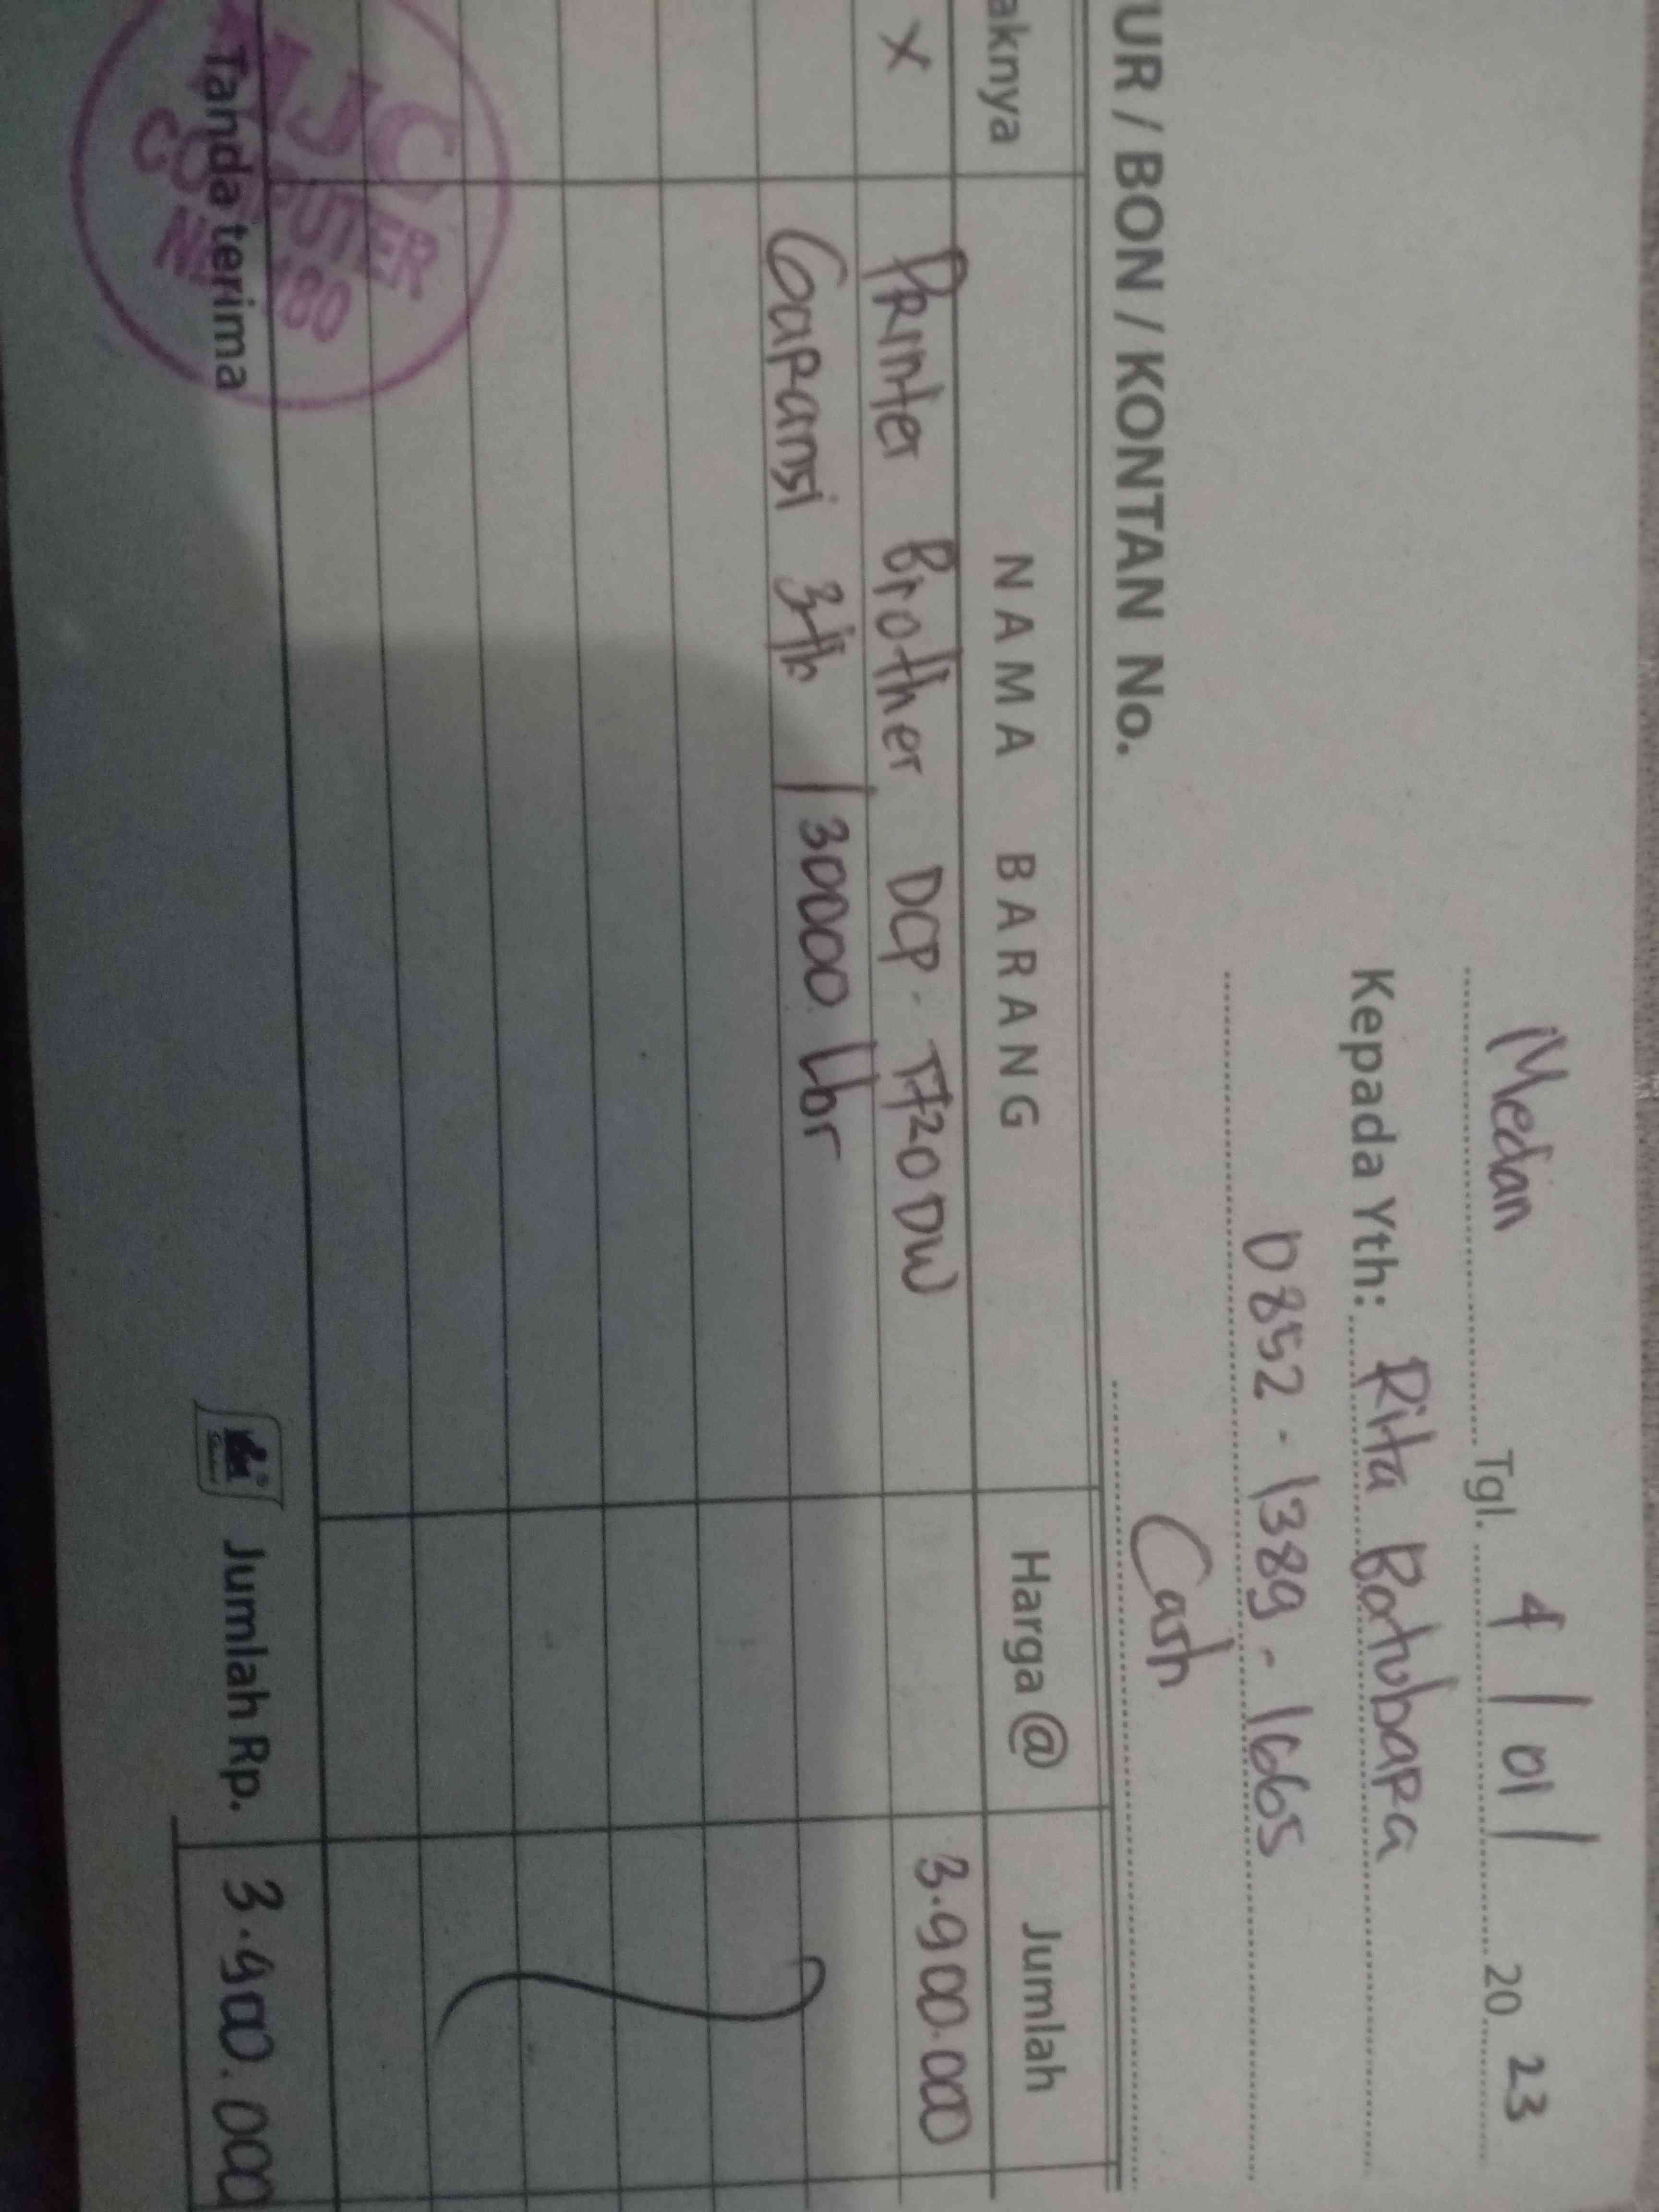 Medan Tgl. 4 / 01 / 20 23
Kepada Yth: Rita Batubara
0852 - 1389 - 1665
UR / BON / KONTAN No. Cash
aknya NAMA BARANG Harga @ Jumlah
X Printer Brother DCP - T720DW 3.900.000
Garansi 3th / 30000 Lbr
AJC
COMPUTER
Tanda terima Jumlah Rp. 3.900.000